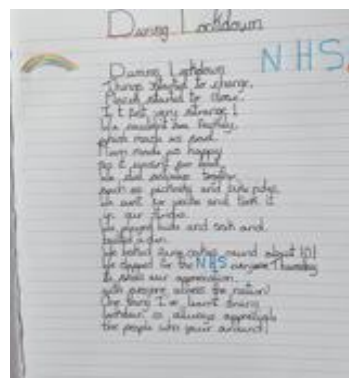 During Lockdown
NHS
During Lockdown
Things started to change,
Places started to close.
It felt very strange!
We couldn't see family,
which made us sad.
Mum made us happy
so it wasn't too bad.
We did together
such as picnics and bike rides.
We went for walks and took it
in our
We played hide and seek and
a den.
We baked cakes round about 101
We clapped for the NHS everyone Thursday
to show our appreciation
with everyone across the nation!
One thing I've learnt during
lockdown is always appreciate
the people who your around!